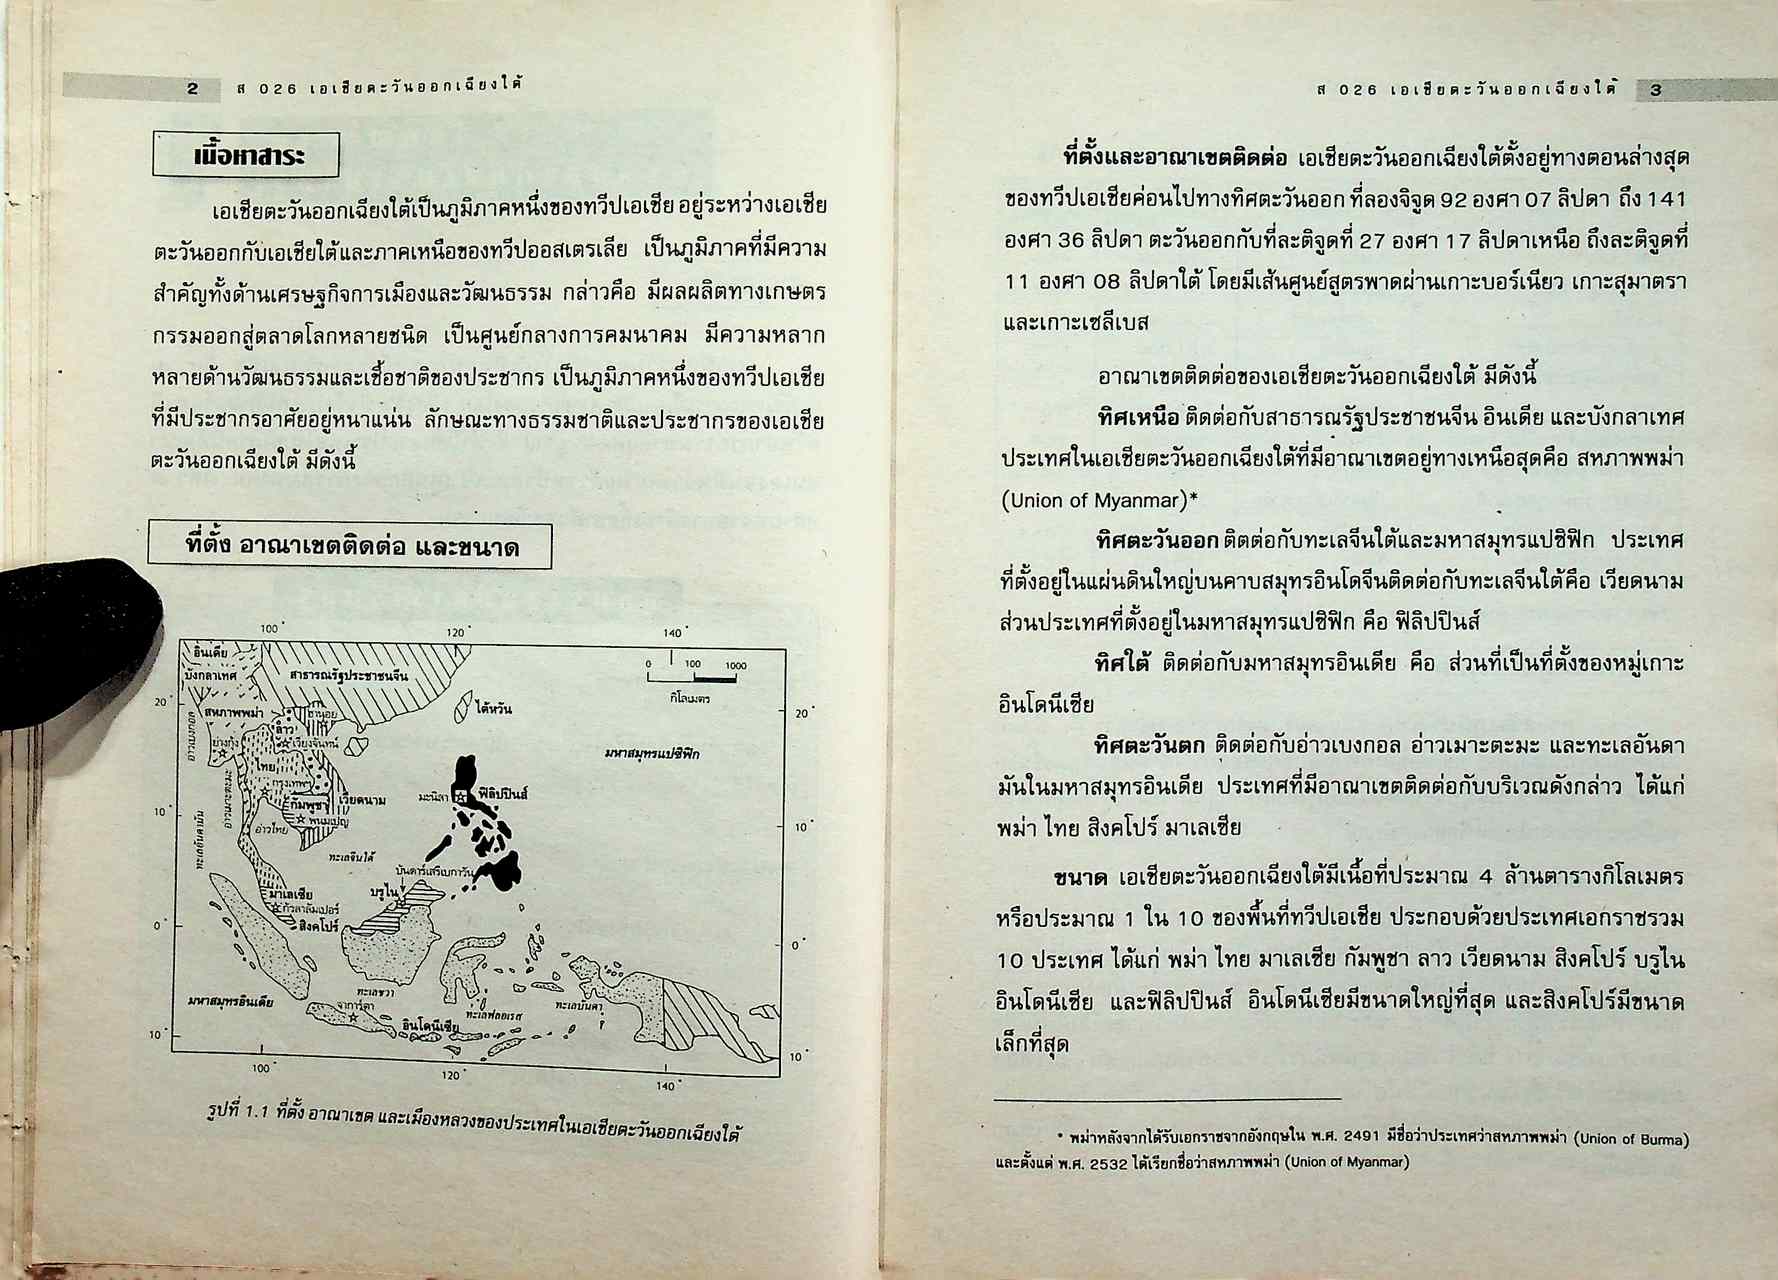 2 ส 026 เอเชียตะวันออกเฉียงใต้
เนื้อหาสาระ
เอเชียตะวันออกเฉียงใต้เป็นภูมิภาคหนึ่งของทวีปเอเชีย อยู่ระหว่างเอเชีย
ตะวันออกกับเอเชียใต้และภาคเหนือของทวีปออสเตรเลีย เป็นภูมิภาคที่มีความ
สำคัญทั้งด้านเศรษฐกิจการเมืองและวัฒนธรรม กล่าวคือ มีผลผลิตทางเกษตร
กรรมออกสู่ตลาดโลกหลายชนิด เป็นศูนย์กลางการคมนาคม มีความหลาก
หลายด้านวัฒนธรรมและเชื้อชาติของประชากร เป็นภูมิภาคหนึ่งของทวีปเอเชีย
ที่มีประชากรอาศัยอยู่หนาแน่น ลักษณะทางธรรมชาติและประชากรของเอเชีย
ตะวันออกเฉียงใต้ มีดังนี้
ที่ตั้ง อาณาเขตติดต่อ และขนาด
100° 120° 140°
อินเดีย
บังกลาเทศ
สาธารณรัฐประชาชนจีน
0 100 1000
กิโลเมตร
20° 20°
สหภาพพม่า
ฮานอย
ไต้หวัน
ลาว
ย่างกุ้ง
เวียงจันทน์
อ่าวเบงกอล
มหาสมุทรแปซิฟิก
ไทย
กรุงเทพฯ
อ่าวเมาะตะมะ
กัมพูชา
เวียดนาม
มะนิลา
ฟิลิปปินส์
10° 10°
พนมเปญ
อ่าวไทย
ทะเลอันดามัน
ทะเลจีนใต้
บันดาร์เสริเบกาวัน
บรูไน
มาเลเซีย
กัวลาลัมเปอร์
สิงคโปร์
0° 0°
มหาสมุทรอินเดีย
ทะเลชวา
จาการ์ตา
ทะเลฟลอเรส
ทะเลบันดา
อินโดนีเซีย
10° 10°
100° 120° 140°
รูปที่ 1.1 ที่ตั้ง อาณาเขต และเมืองหลวงของประเทศในเอเชียตะวันออกเฉียงใต้
ส 026 เอเชียตะวันออกเฉียงใต้ 3
ที่ตั้งและอาณาเขตติดต่อ เอเชียตะวันออกเฉียงใต้ตั้งอยู่ทางตอนล่างสุด
ของทวีปเอเชียค่อนไปทางทิศตะวันออก ที่ลองจิจูด 92 องศา 07 ลิปดา ถึง 141
องศา 36 ลิปดา ตะวันออกกับที่ละติจูดที่ 27 องศา 17 ลิปดาเหนือ ถึงละติจูดที่
11 องศา 08 ลิปดาใต้ โดยมีเส้นศูนย์สูตรพาดผ่านเกาะบอร์เนียว เกาะสุมาตรา
และเกาะเซลีเบส
อาณาเขตติดต่อของเอเชียตะวันออกเฉียงใต้ มีดังนี้
ทิศเหนือ ติดต่อกับสาธารณรัฐประชาชนจีน อินเดีย และบังกลาเทศ
ประเทศในเอเชียตะวันออกเฉียงใต้ที่มีอาณาเขตอยู่ทางเหนือสุดคือ สหภาพพม่า
(Union of Myanmar)*
ทิศตะวันออก ติดต่อกับทะเลจีนใต้และมหาสมุทรแปซิฟิก ประเทศ
ที่ตั้งอยู่ในแผ่นดินใหญ่บนคาบสมุทรอินโดจีนติดต่อกับทะเลจีนใต้คือ เวียดนาม
ส่วนประเทศที่ตั้งอยู่ในมหาสมุทรแปซิฟิก คือ ฟิลิปปินส์
ทิศใต้ ติดต่อกับมหาสมุทรอินเดีย คือ ส่วนที่เป็นที่ตั้งของหมู่เกาะ
อินโดนีเซีย
ทิศตะวันตก ติดต่อกับอ่าวเบงกอล อ่าวเมาะตะมะ และทะเลอันดา
มันในมหาสมุทรอินเดีย ประเทศที่มีอาณาเขตติดต่อกับบริเวณดังกล่าว ได้แก่
พม่า ไทย สิงคโปร์ มาเลเซีย
ขนาด เอเชียตะวันออกเฉียงใต้มีเนื้อที่ประมาณ 4 ล้านตารางกิโลเมตร
หรือประมาณ 1 ใน 10 ของพื้นที่ทวีปเอเชีย ประกอบด้วยประเทศเอกราชรวม
10 ประเทศ ได้แก่ พม่า ไทย มาเลเซีย กัมพูชา ลาว เวียดนาม สิงคโปร์ บรูไน
อินโดนีเซีย และฟิลิปปินส์ อินโดนีเซียมีขนาดใหญ่ที่สุด และสิงคโปร์มีขนาด
เล็กที่สุด
* พม่าหลังจากได้รับเอกราชจากอังกฤษใน พ.ศ. 2491 มีชื่อว่าประเทศว่าสหภาพพม่า (Union of Burma)
และตั้งแต่ พ.ศ. 2532 ได้เรียกชื่อว่าสหภาพพม่า (Union of Myanmar)